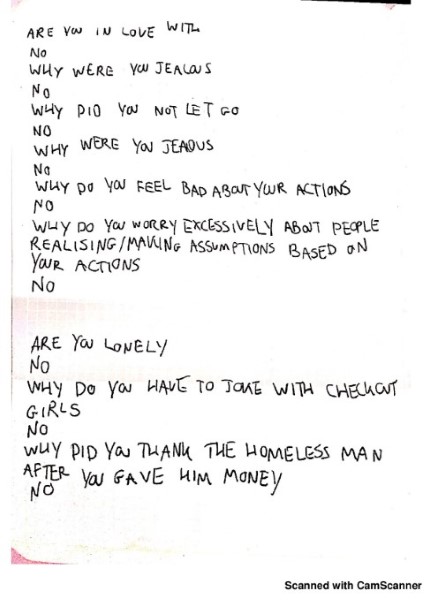 ARE YOU IN LOVE WITH
NO
WHY WERE YOU JEALOUS
NO
WHY DID YOU NOT LET GO
NO
WHY WERE YOU JEAOUS
NO
WHY DO YOU FEEL BAD ABOUT YOUR ACTIONS
NO
WHY DO YOU WORRY EXCESSIVELY ABOUT PEOPLE
REALISING/MAKING ASSUMPTIONS BASED ON
YOUR ACTIONS
NO
ARE YOU LONELY
NO
WHY DO YOU HAVE TO JOKE WITH CHECKOUT
GIRLS
NO
WHY DID YOU THANK THE HOMELESS MAN
AFTER YOU GAVE HIM MONEY
NO
Scanned with CamScanner